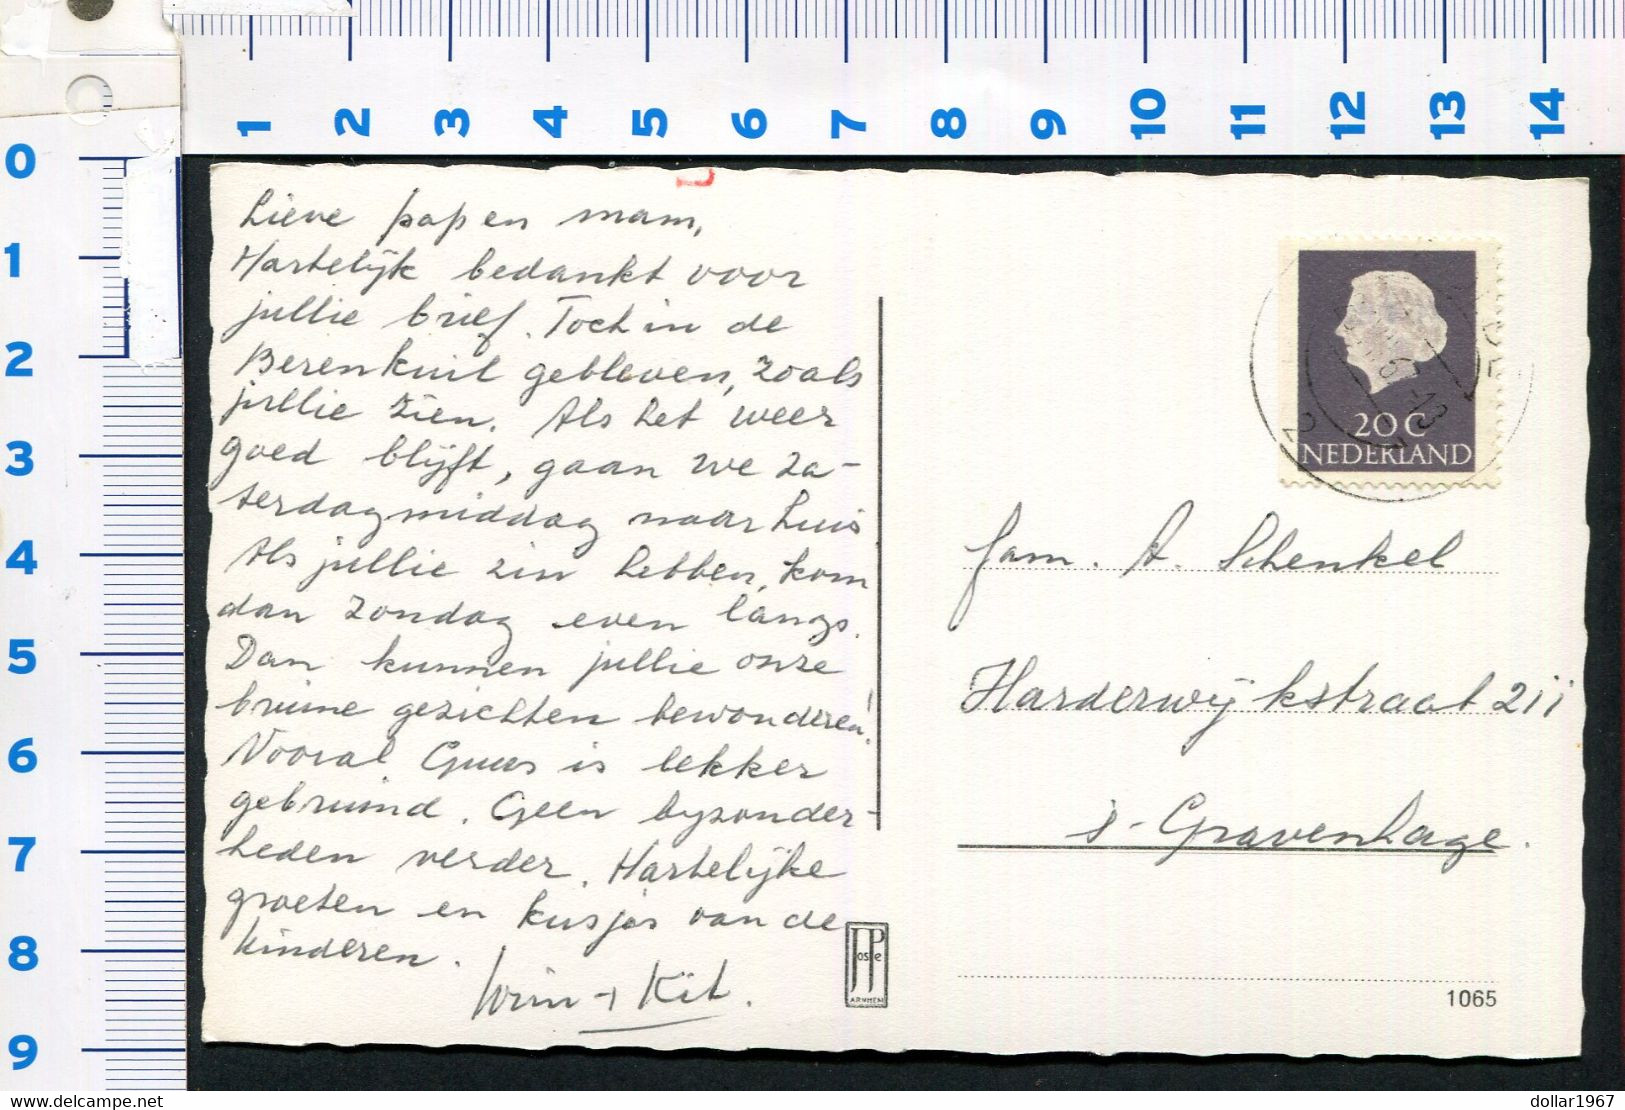 1 2 3 4 5 6 7 8 9 10 11 12 13 14
0
1
2
3
4
5
6
7
8
9
Lieve pap en mam,
Hartelijk bedankt voor
jullie brief. Toch in de
Berenkuil gebleven, zoals
jullie zien. Als het weer
goed blijft, gaan we za-
terdagmiddag naar huis
Als jullie zin hebben, kom
dan zondag even langs.
Dan kunnen jullie onze
bruine gezichten bewonderen!
Vooral Guus is lekker
gebruind. Geen byzonder-
heden verder. Hartelijke
groeten en kusjes van de
kinderen.
Wim + Kit.
20 C
NEDERLAND
Fam. A. Schenkel
Harderwijkstraat 211
s-Gravenhage.
JosPe
ARNHEM
1065
www.delcampe.net
dollar1967